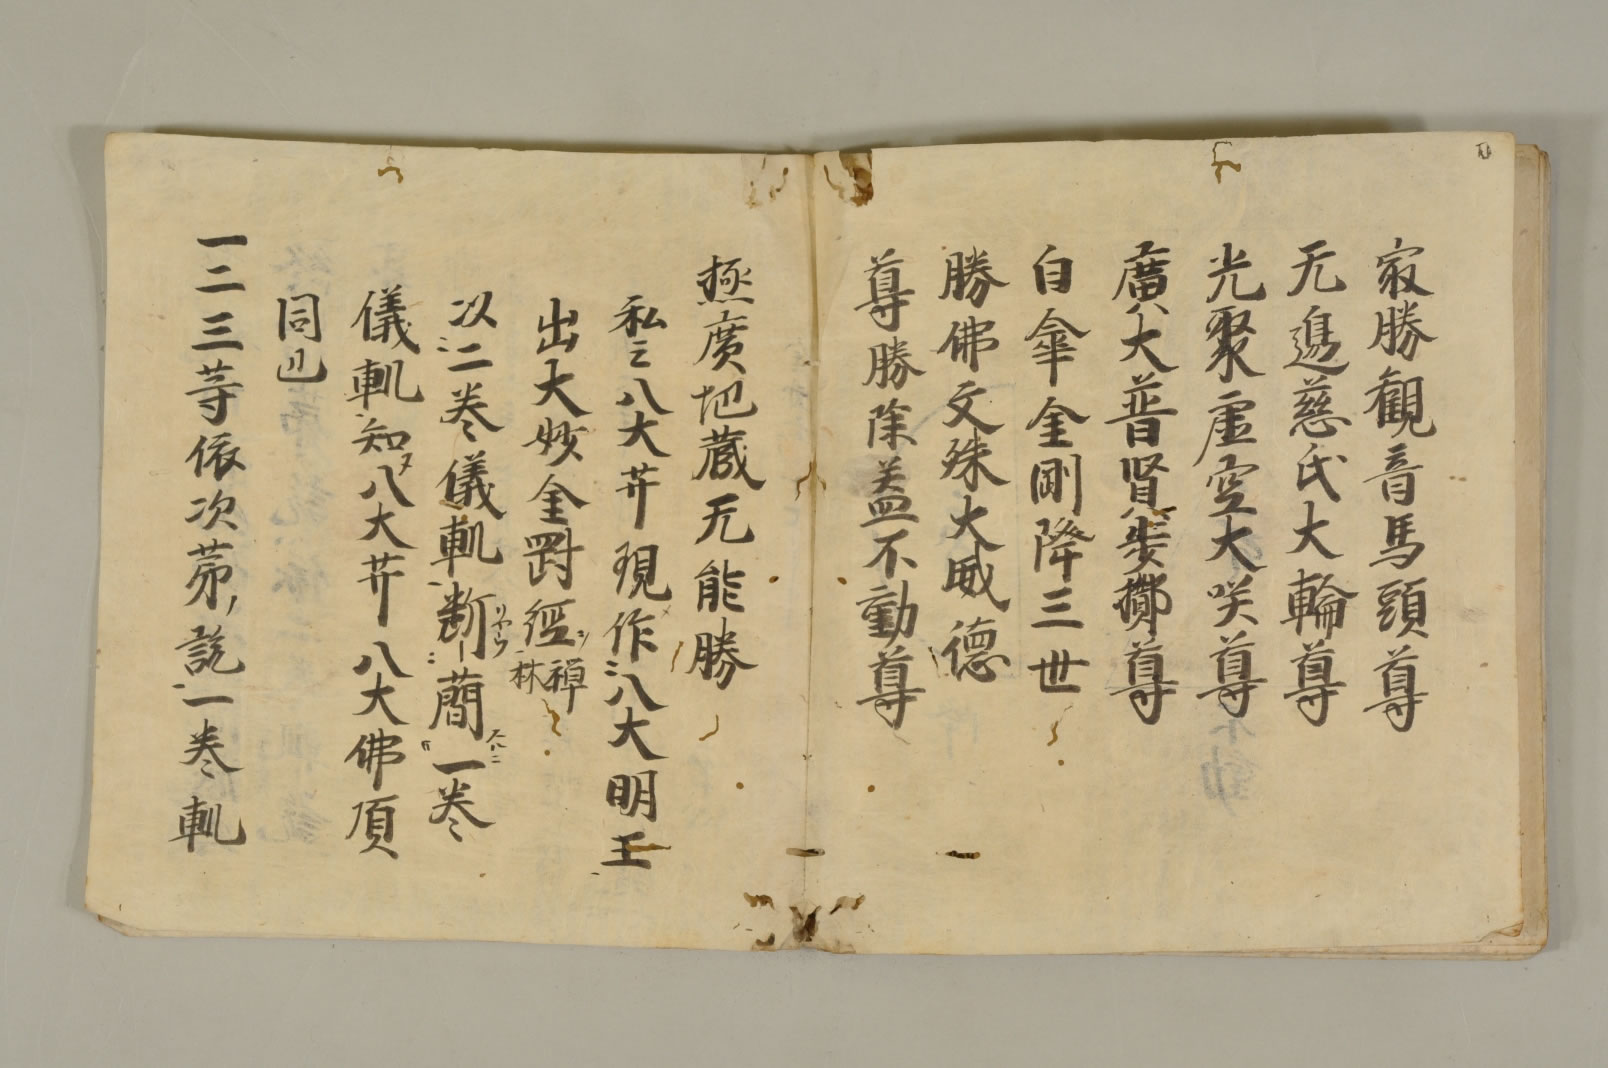 冣勝観音馬頭尊
无邊慈氏大輪尊
光聚虚空大咲尊
廣大普賢歩擲尊
白傘金剛降三世
勝佛文殊大威德
尊勝除盖不動尊
極廣地蔵无能勝
私云八大䒑現作八大明王
出大妙金罸經 禅林
以二巻儀軌断蕳一巻
儀軌知八大䒑八大佛頂
同也
一二三等依次第說一巻軌